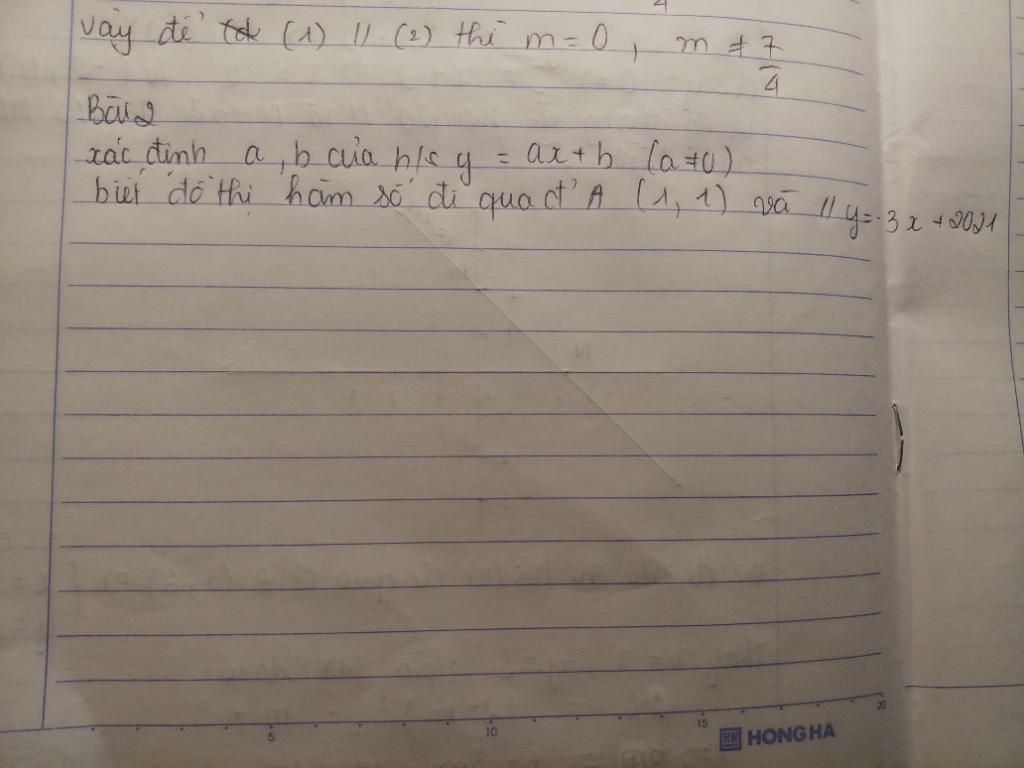 4
vậy để (1) // (2) thì m = 0 , m ≠ 7/4
Bài 2
xác định a , b của h/s y = ax + b (a ≠ 0)
biết đồ thị hàm số đi qua đ' A (1, 1) và // y = -3x + 2021
5 10 15 20
HONG HA